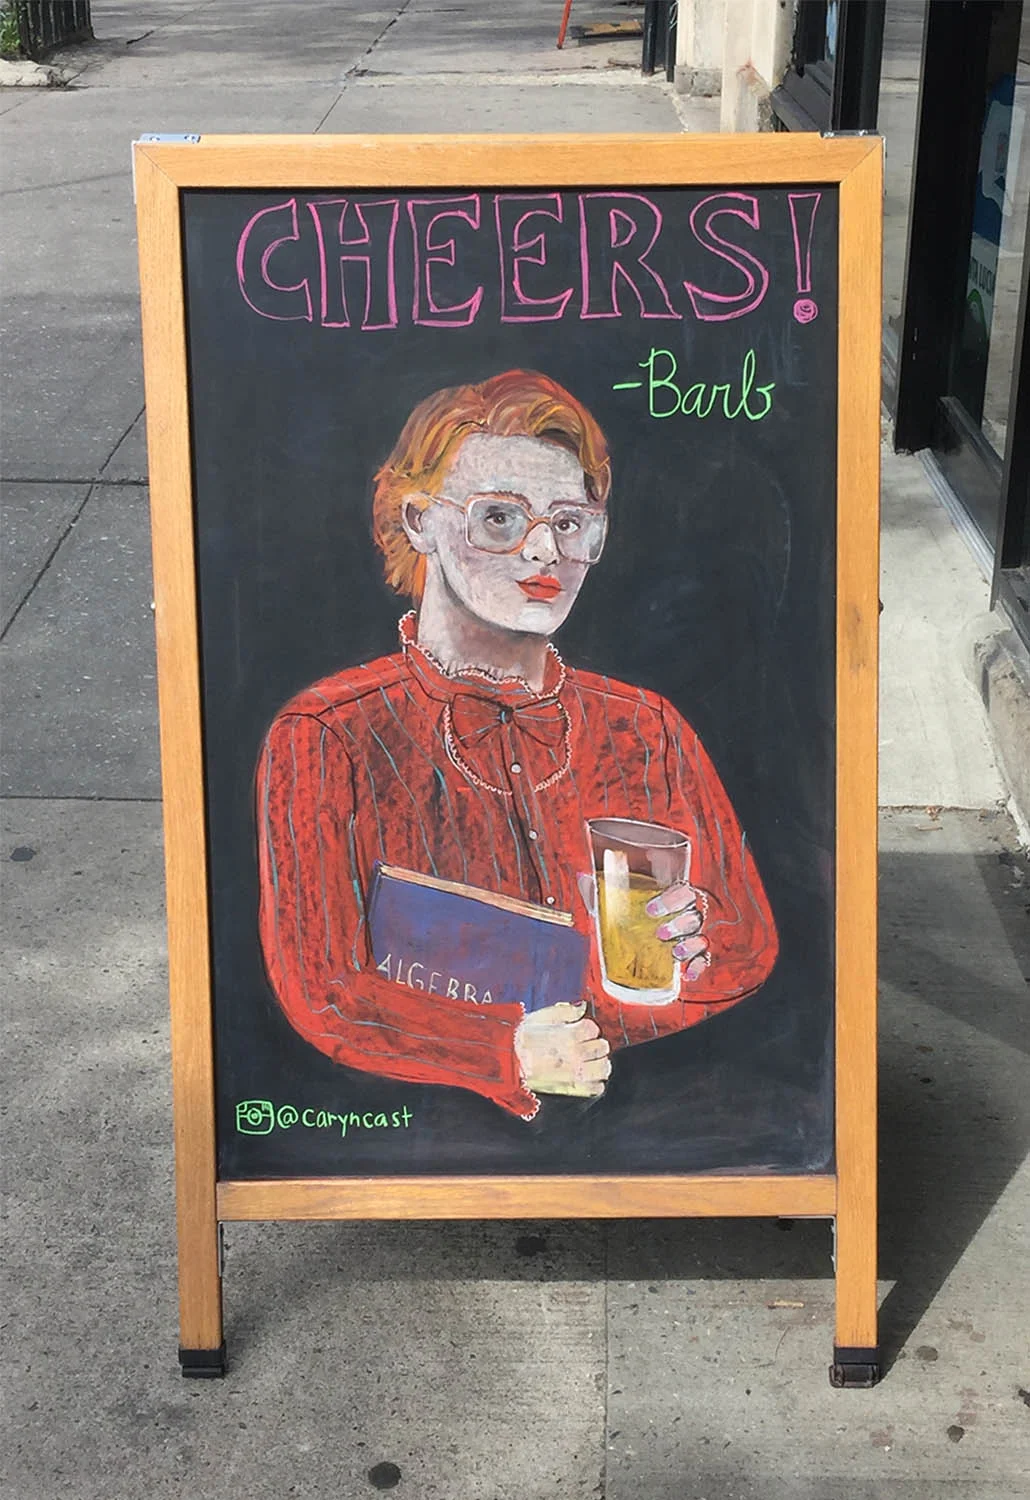 CHEERS!
-Barb
ALGEBRA
@caryncast